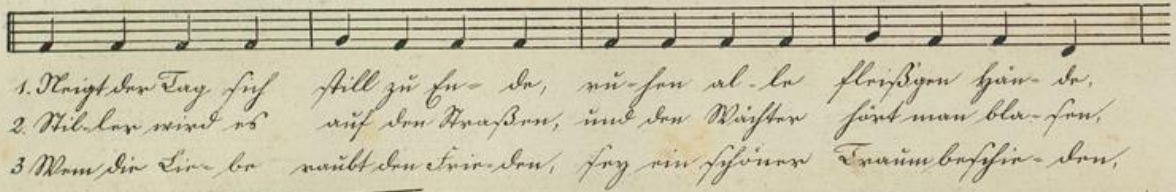 1. Neigt der Tag sich still zu En- de, ru- hen al- le fleiß'gen Hän- de,
2. Stil- ler wird es auf den Straßen, und den Wächter hört man bla- sen,
3 Wem die Lie- be raubt den Frie- den, sey ein schöner Traum beschie- den,